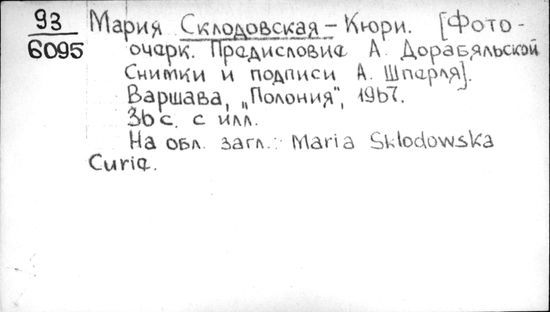 93 Мария Склодовская-Кюри. [Фото-
6095 очерк. Предисловие А. Дорабяльской
Снимки и подписи А. Шперля].
Варшава, „Полония", 1967.
36 с. с илл.
На обл. загл.: Maria Skłodowska
Curie.